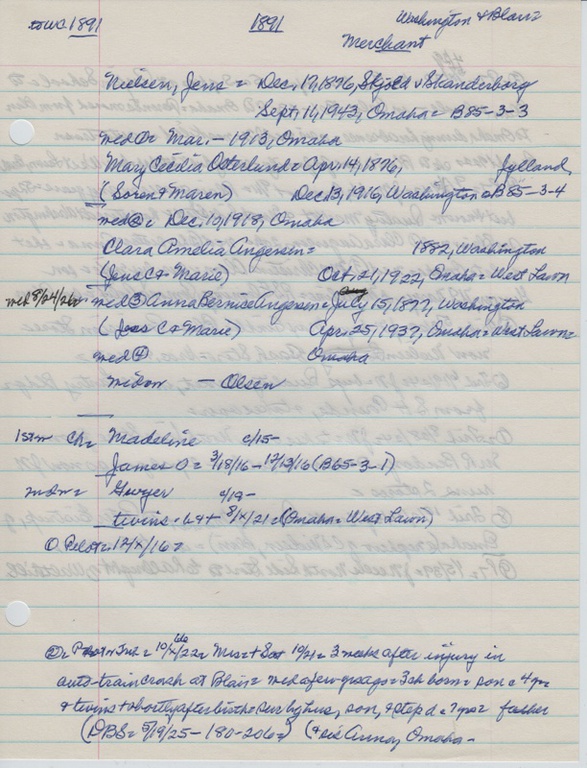 1891 1891 Washington & Blair
Merchant
Nielsen, Jens = Dec. 17, 1876, Skjold v Skanderborg
Sept. 11, 1943, Omaha = B85-3-3
med ① = Mar. - 1913, Omaha
Mary Cecilia Osterlund = Apr. 14, 1876, Jylland,
(Soren & Maren) Dec. 13, 1916, Washington = B85-3-4
med ② = Dec. 10, 1918, Omaha
Clara Amelia Angersen = 1882, Washington
(Jens C & Marie) Oct. 21, 1922, Omaha = West Lawn
med 8/24/26 med ③ Anna Bernice Angersen = July 15, 1877, Washington
(Jens C & Marie) Apr. 25, 1937, Omaha = West Lawn
med ④ Omaha
— Olsen
1st m Ch = Madeline c/15 -
James O = 3/18/16 - 12/13/16 (B65-3-1)
2nd m = c/19 -
twins = & + 8/x/21 = (Omaha = West Lawn)
O Pilot = 12/x/16 =
= 10/x/22 = Mrs = + Sat 10/21 = 3 weeks after injury in
auto-train crash at Blair = med a few yrs ago = 3 ch born = son = 4 yrs
& twins + shortly after birth = Sur by hus, son, & step d = 7 yrs father
(DBS = 5/19/25 - 180-206 =) (& sis Anna, Omaha -